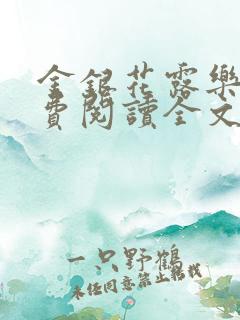 金銀花露樂
費閱讀全文
一只野鶴
未經同意禁止轉載